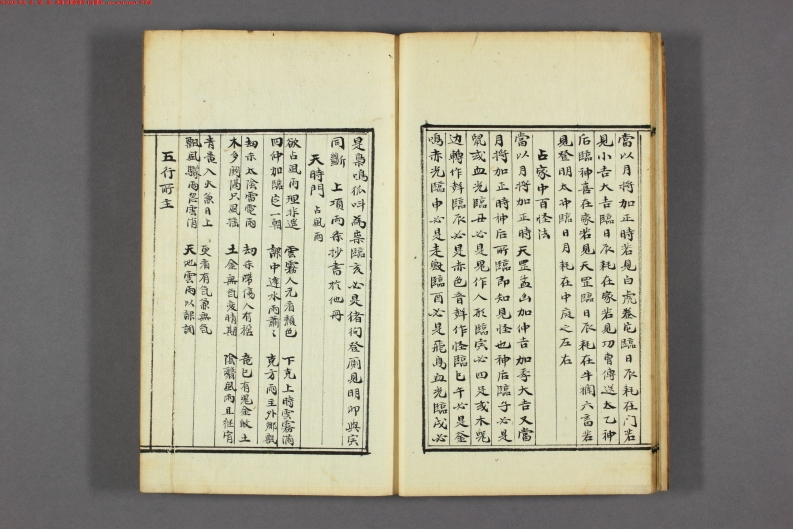 當以月將加正時若見白虎螣蛇臨日辰耗在门若
見小吉大吉臨日辰耗在家若見功曹傳送太乙神
后臨神喜在家若見天罡臨日辰耗在牛栏六畜若
見登明太冲臨日月耗在中庭之左右
占家中百怪法
當以月將加正時天罡孟凶加仲吉加季大吉又當
月將加正時神后所臨即知見怪也神后臨子必是
鼠或血光臨丑必是鬼作人形臨寅必四足或木鬼
边轉作斜臨辰必是赤色音斜作怪臨巳午必是釜
鳴赤光臨申必是走獸臨酉必是飛鳥血光臨戌必
是梟鳴狐叫為祟臨亥必是猪狗登厠見明即與寅
同斷 上項两条抄書於他冊
天時門 占風雨
欲占風雨理非遥 雲霧人元看顔色 下克上時雲霧满
四仲加臨 一朝 課中逢水雨蕭〻 克方雨主外那飘
劫杀太陰雷電雨 劫杀 傷人有 竜巳有鬼金故土
水多 只風搖 土金無氣夜晴期 陰 風雨且狂
青竜入火象日上 更看有氣象無氣
飄風驟雨忽雲消 天地雲雨以課詞
五行所主